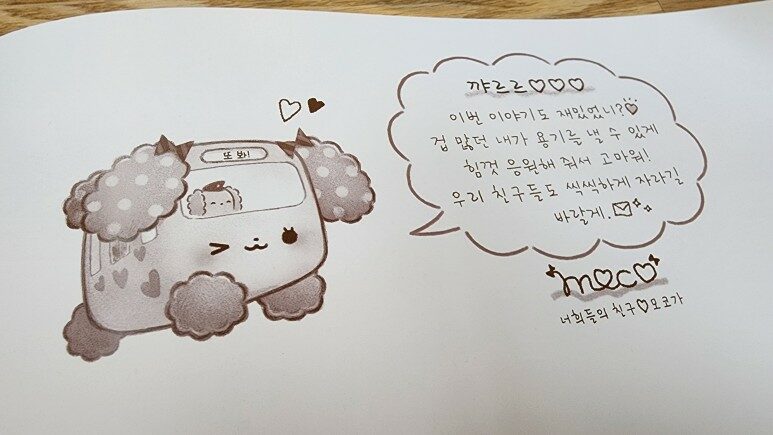 또 봐!
꺄르르♡♡♡
이번 이야기도 재밌었니?
겁 많던 내가 용기를 낼 수 있게
힘껏 응원해 줘서 고마워!
우리 친구들도 씩씩하게 자라길
바랄게.
moco
너희들의 친구♡모코가